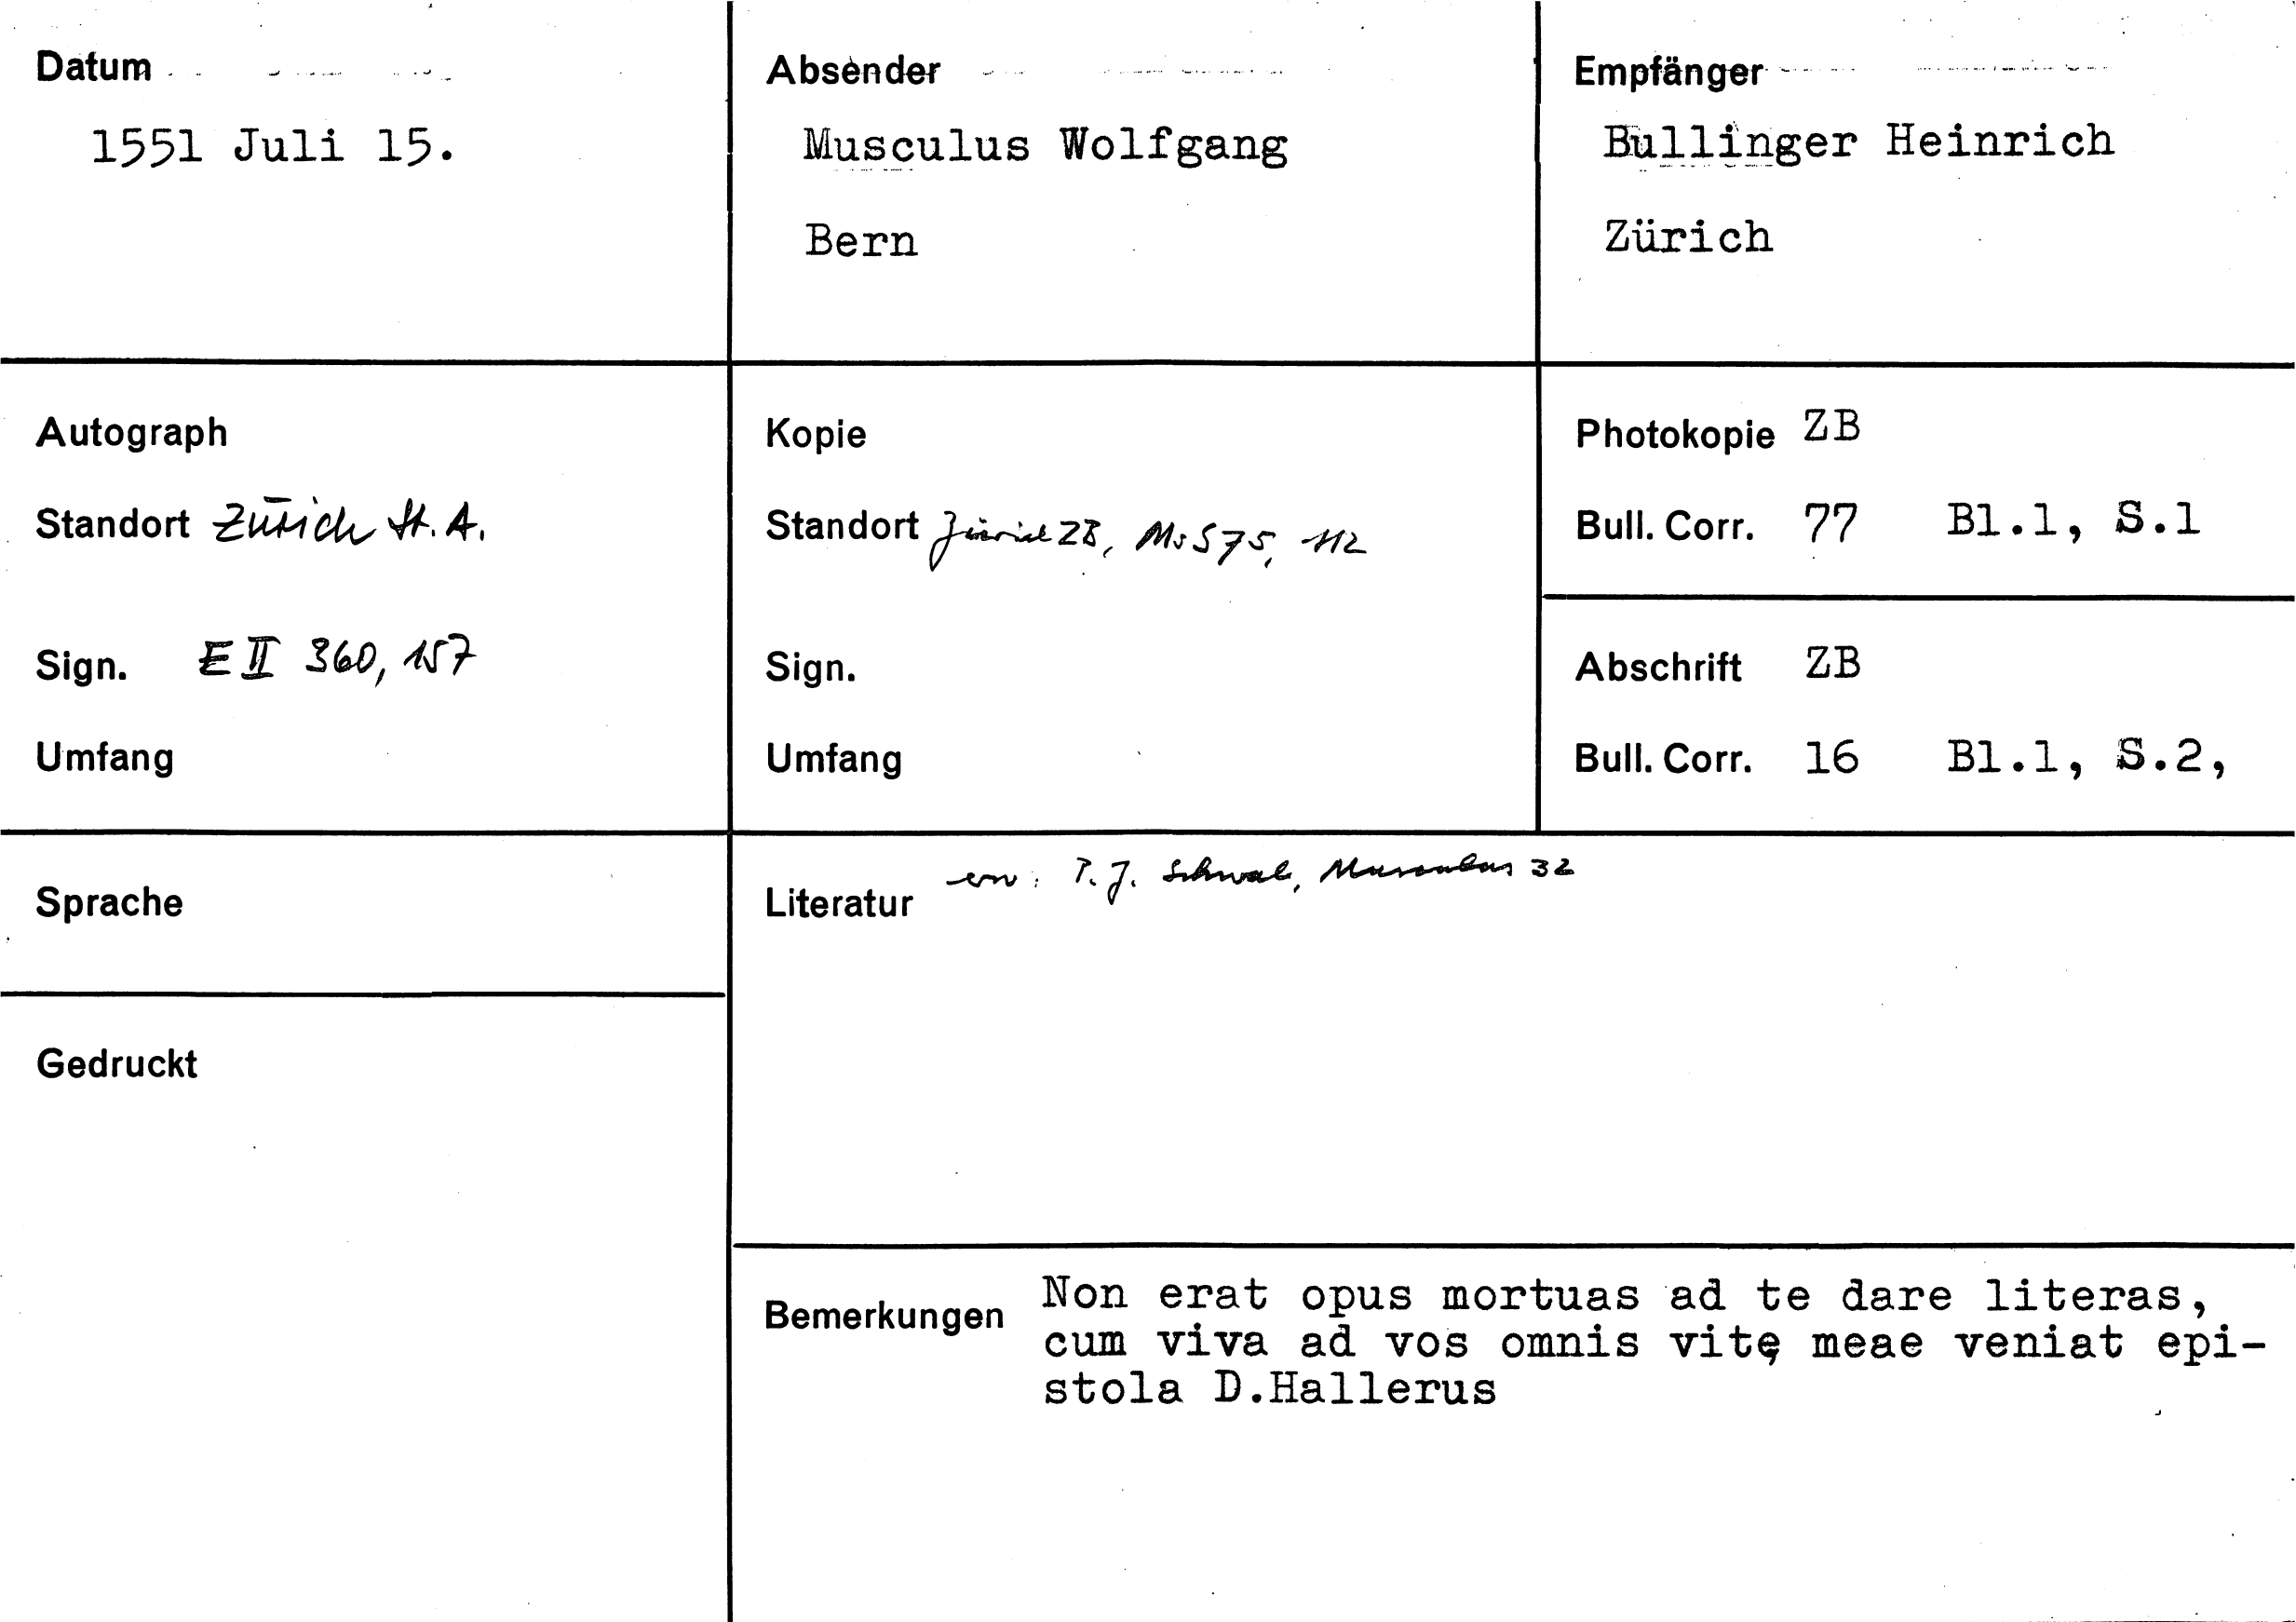 Datum
1551 Juli 15.
Absender
Musculus Wolfgang
Bern
Empfänger
Bullinger Heinrich
Zürich
Autograph
Standort Zürich St. A.
Sign. E II 360, 157
Umfang
Kopie
Standort Zürich ZB, Ms S 75, 112
Sign.
Umfang
Photokopie ZB
Bull. Corr. 77 Bl.1, S.1
Abschrift ZB
Bull. Corr. 16 Bl.1, S.2,
Sprache
Gedruckt
Literatur erw: P. J. Schwab, Musculus 32
Bemerkungen Non erat opus mortuas ad te dare literas,
cum viva ad vos omnis vitę meae veniat epi-
stola D.Hallerus